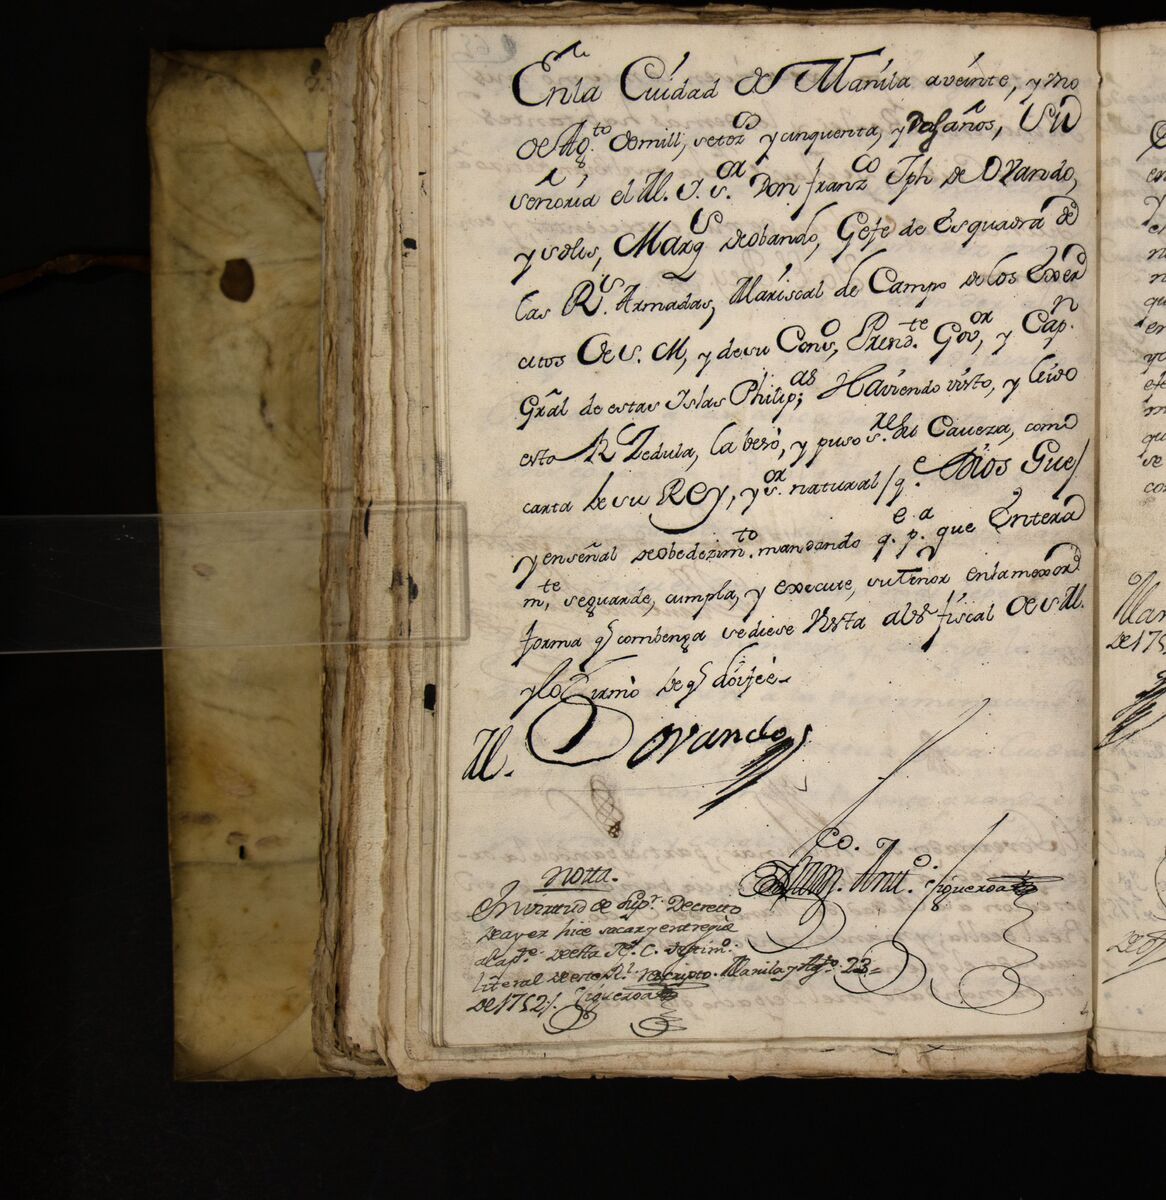 En la Ciudad de Manila a veinte, y uno
de Ag.to de mill, setez.os y cinquenta, y dos años, Su
señoria el M. I. S.or Don Franz.co Jph de Ovando,
y solis, Marq.s de obando, Gefe de Esquadra de
las R.s Armadas, Mariscal de Campo de los Exer
citos de S. M, y de su Cons.o, Presid.te Gov.or, y Cap.n
Gral de estas Islas Philip.as Haviendo visto, y leido
esta Rl Zedula, la besò, y puso s.re su Caveza, como
carta de su Rey, y s.or natural / q.e Dios Gue/
y en señal de obedezim.to mandando q.e p.a que entera
m.te, se guarde, cumpla, y execute, su tenor en la mexor
forma q̃ combenga se diese Vista al s.r fiscal de S. M.
y lo firmò de q̃ doi feè
M. Ovando
Juan. Ant.o Figueroa
Notta.
En virtud de sup.r Decretto
de ayer hice sacar y entregue
a la p.te de esta N. C. testim.o
literal de este Rl. rescripto. Manila y Ag.to 23
de 1752 /. Figueroa